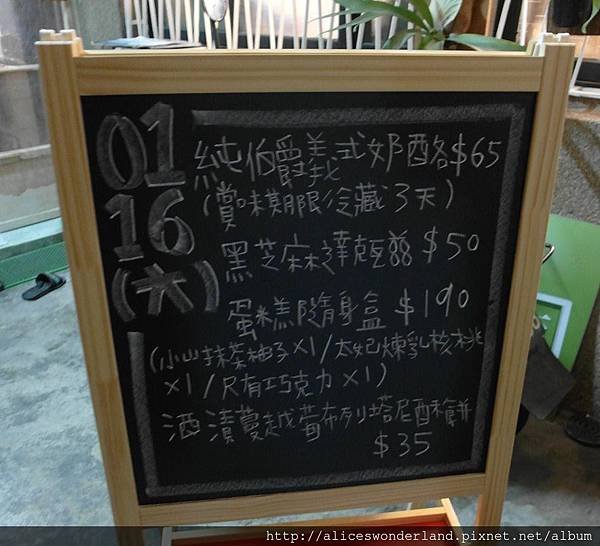 01
16
(六)
純伯爵義式奶酪$65
(賞味期限冷藏3天)
黑芝麻達克瓦茲$50
蛋糕隨身盒$190
(小山抹茶柚子×1/太妃煉乳核桃
×1/只有巧克力×1)
酒漬蔓越莓布列塔尼酥餅
$35
http://aliceswonderland.pixnet.net/album